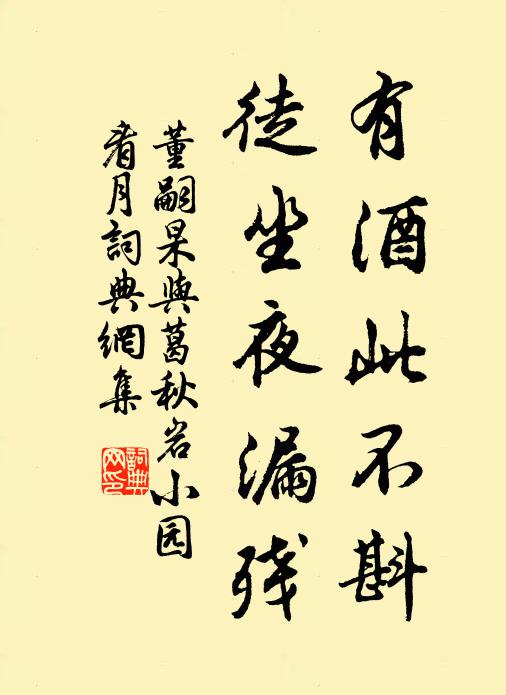 有酒此不斟
徒坐夜漏残
董嗣杲與葛秋岩小园
看月詞典網集
詞典网印